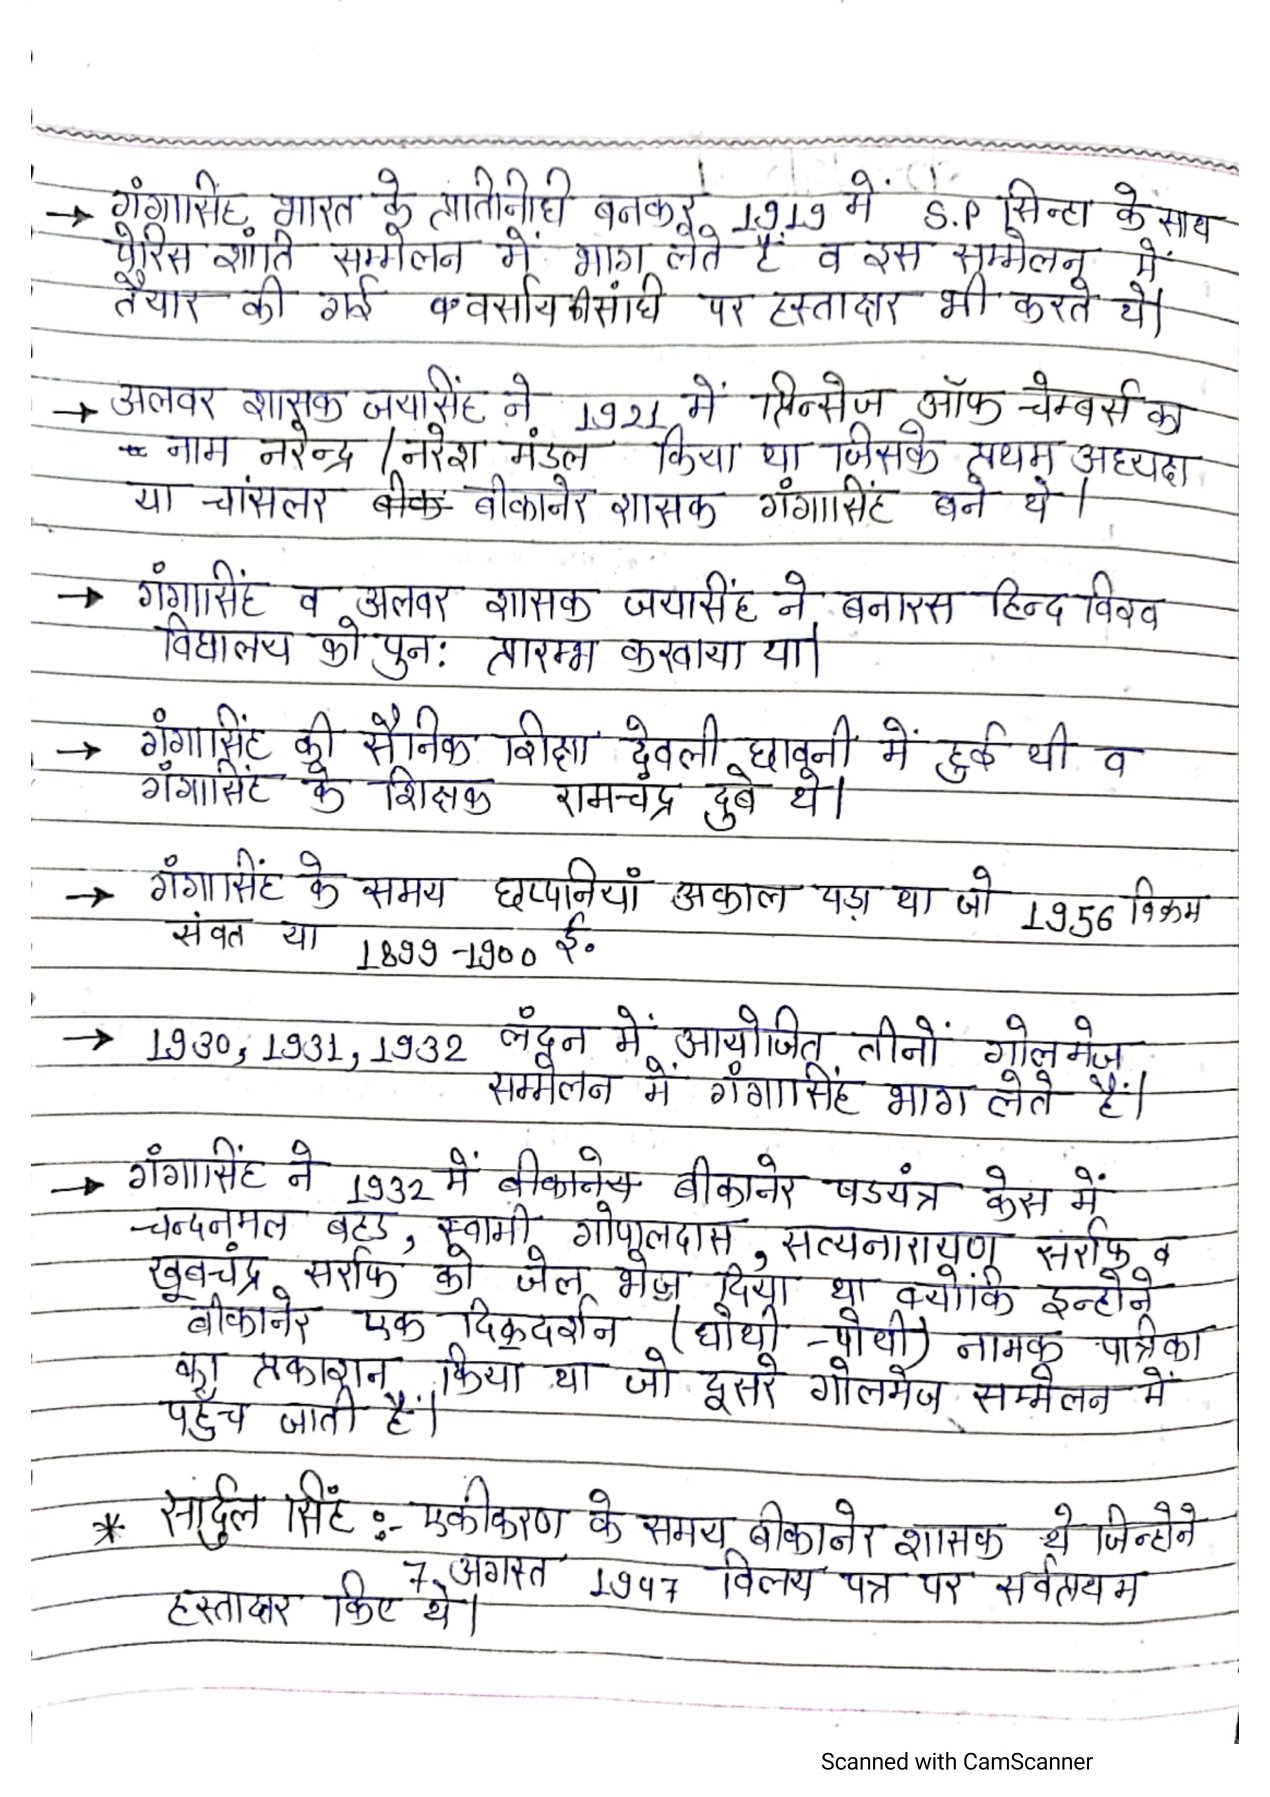 → गंगासिंह भारत के प्रतिनिधी बनकर 1919 में S.P सिन्हा के साथ
पेरिस शांति सम्मेलन में भाग लेते हैं व इस सम्मेलन में
तैयार की गई वर्साय की संधी पर हस्ताक्षर भी करते थे।
→ अलवर शासक जयसिंह ने 1921 में प्रिन्सेज ऑफ चेम्बर्स का
नाम नरेन्द्र / नरेश मंडल किया था जिसके प्रथम अध्यक्ष
या चांसलर बीक बीकानेर शासक गंगासिंह बने थे।
→ गंगासिंह व अलवर शासक जयसिंह ने बनारस हिन्द विश्व
विद्यालय को पुन: प्रारम्भ करवाया था।
→ गंगासिंह की सैनिक शिक्षा देवली छावनी में हुई थी व
गंगासिंह के शिक्षक रामचंद्र दुबे थे।
→ गंगासिंह के समय छप्पनियाँ अकाल पड़ा था जो 1956 विक्रम
संवत या 1899-1900 ई.
→ 1930, 1931, 1932 लंदन में आयोजित तीनों गोलमेज
सम्मेलन में गंगासिंह भाग लेते हैं।
→ गंगासिंह ने 1932 में बीकानेय बीकानेर षडयंत्र केस में
चन्दनमल बहड, स्वामी गोपालदास, सत्यनारायण सर्राफ व
खूबचंद्र सर्राफ को जेल भेज दिया था क्योंकि इन्होंने
बीकानेर एक दिकदर्शन (घोथी-पोथी) नामक पत्रिका
का प्रकाशन किया था जो दूसरे गोलमेज सम्मेलन में
पहुँच जाती हैं।
* सार्दुल सिंह :- एकीकरण के समय बीकानेर शासक थे जिन्होने
7 अगस्त 1947 विलय पत्र पर सर्वप्रथम
हस्ताक्षर किए थे।
Scanned with CamScanner